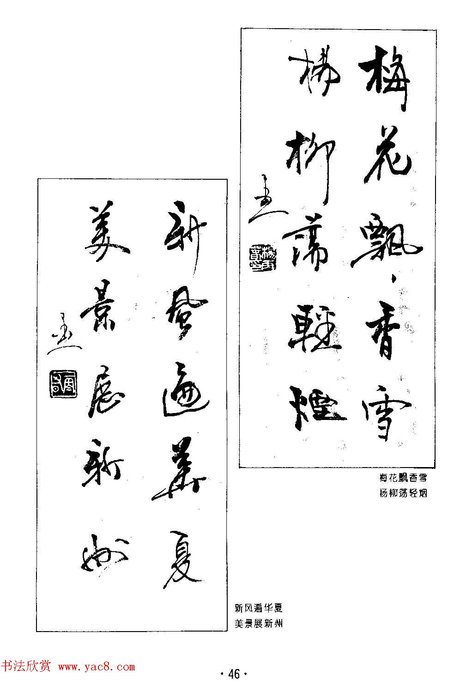 梅花飄香雪
楊柳蕩輕煙
梅花飘香雪
杨柳荡轻烟
新風遍華夏
美景展新州
新风遍华夏
美景展新州
·46·
书法欣赏 www.yac8.com